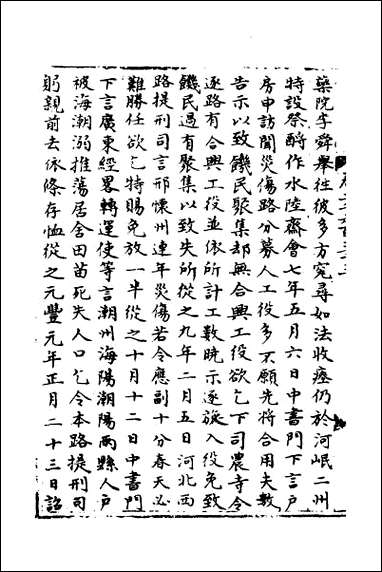 藥院李舜舉往彼多方宛尋如法收瘞仍於河岷二州
特設祭酹作水陸齋會七年五月六日中書門下言戶
房申訪聞災傷路分募人工役多不願先將合用夫數
告示以致饑民聚集却無合興工役欲乞下司農寺令
逐路有合興工役並依所計工數曉示逐旋入役免致
饑民過有聚集以致失所從之九年二月五日河北西
路提刑司言邢懷州連年災傷若令應副十分春夫必
難勝任欲乞特賜免放一半從之十月十二日中書門
下言廣東經畧轉運使等言潮州海陽潮陽兩縣人戶
被海潮溺推蕩居舍田苗死失人口乞令本路提刑司
躬親前去依條存恤從之元豐元年正月二十三日詔